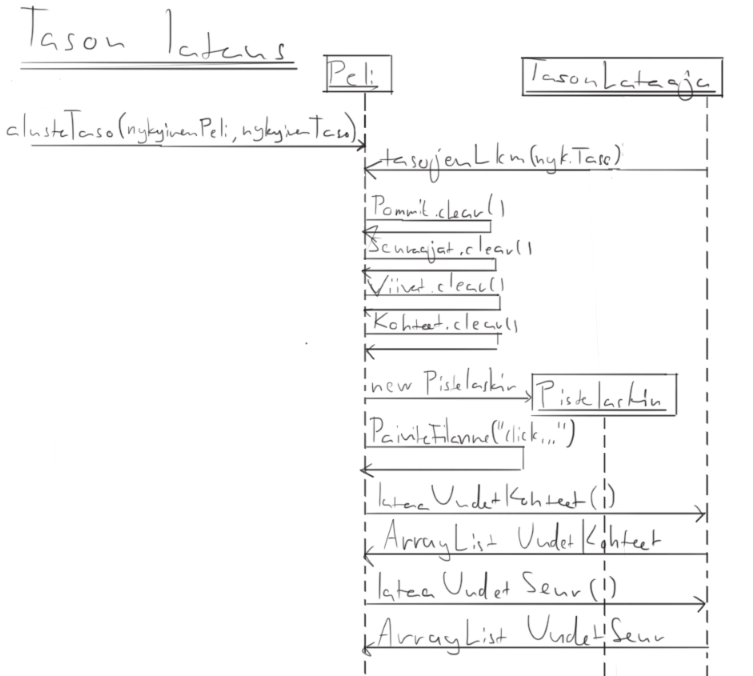 Tason lataus
Peli
TasonLataaja
alustaTaso(nykyinenPeli, nykyinenTaso)
tasojenLkm(nyk.Taso)
Pommit.clear()
Seuraajat.clear()
Viivat.clear()
Kohteet.clear()
new Pistelaskin
Pistelaskin
PaivitaTilanne("click...")
lataaUudetKohteet()
ArrayList UudetKohteet
lataaUudet Seur()
ArrayList UudetSeur